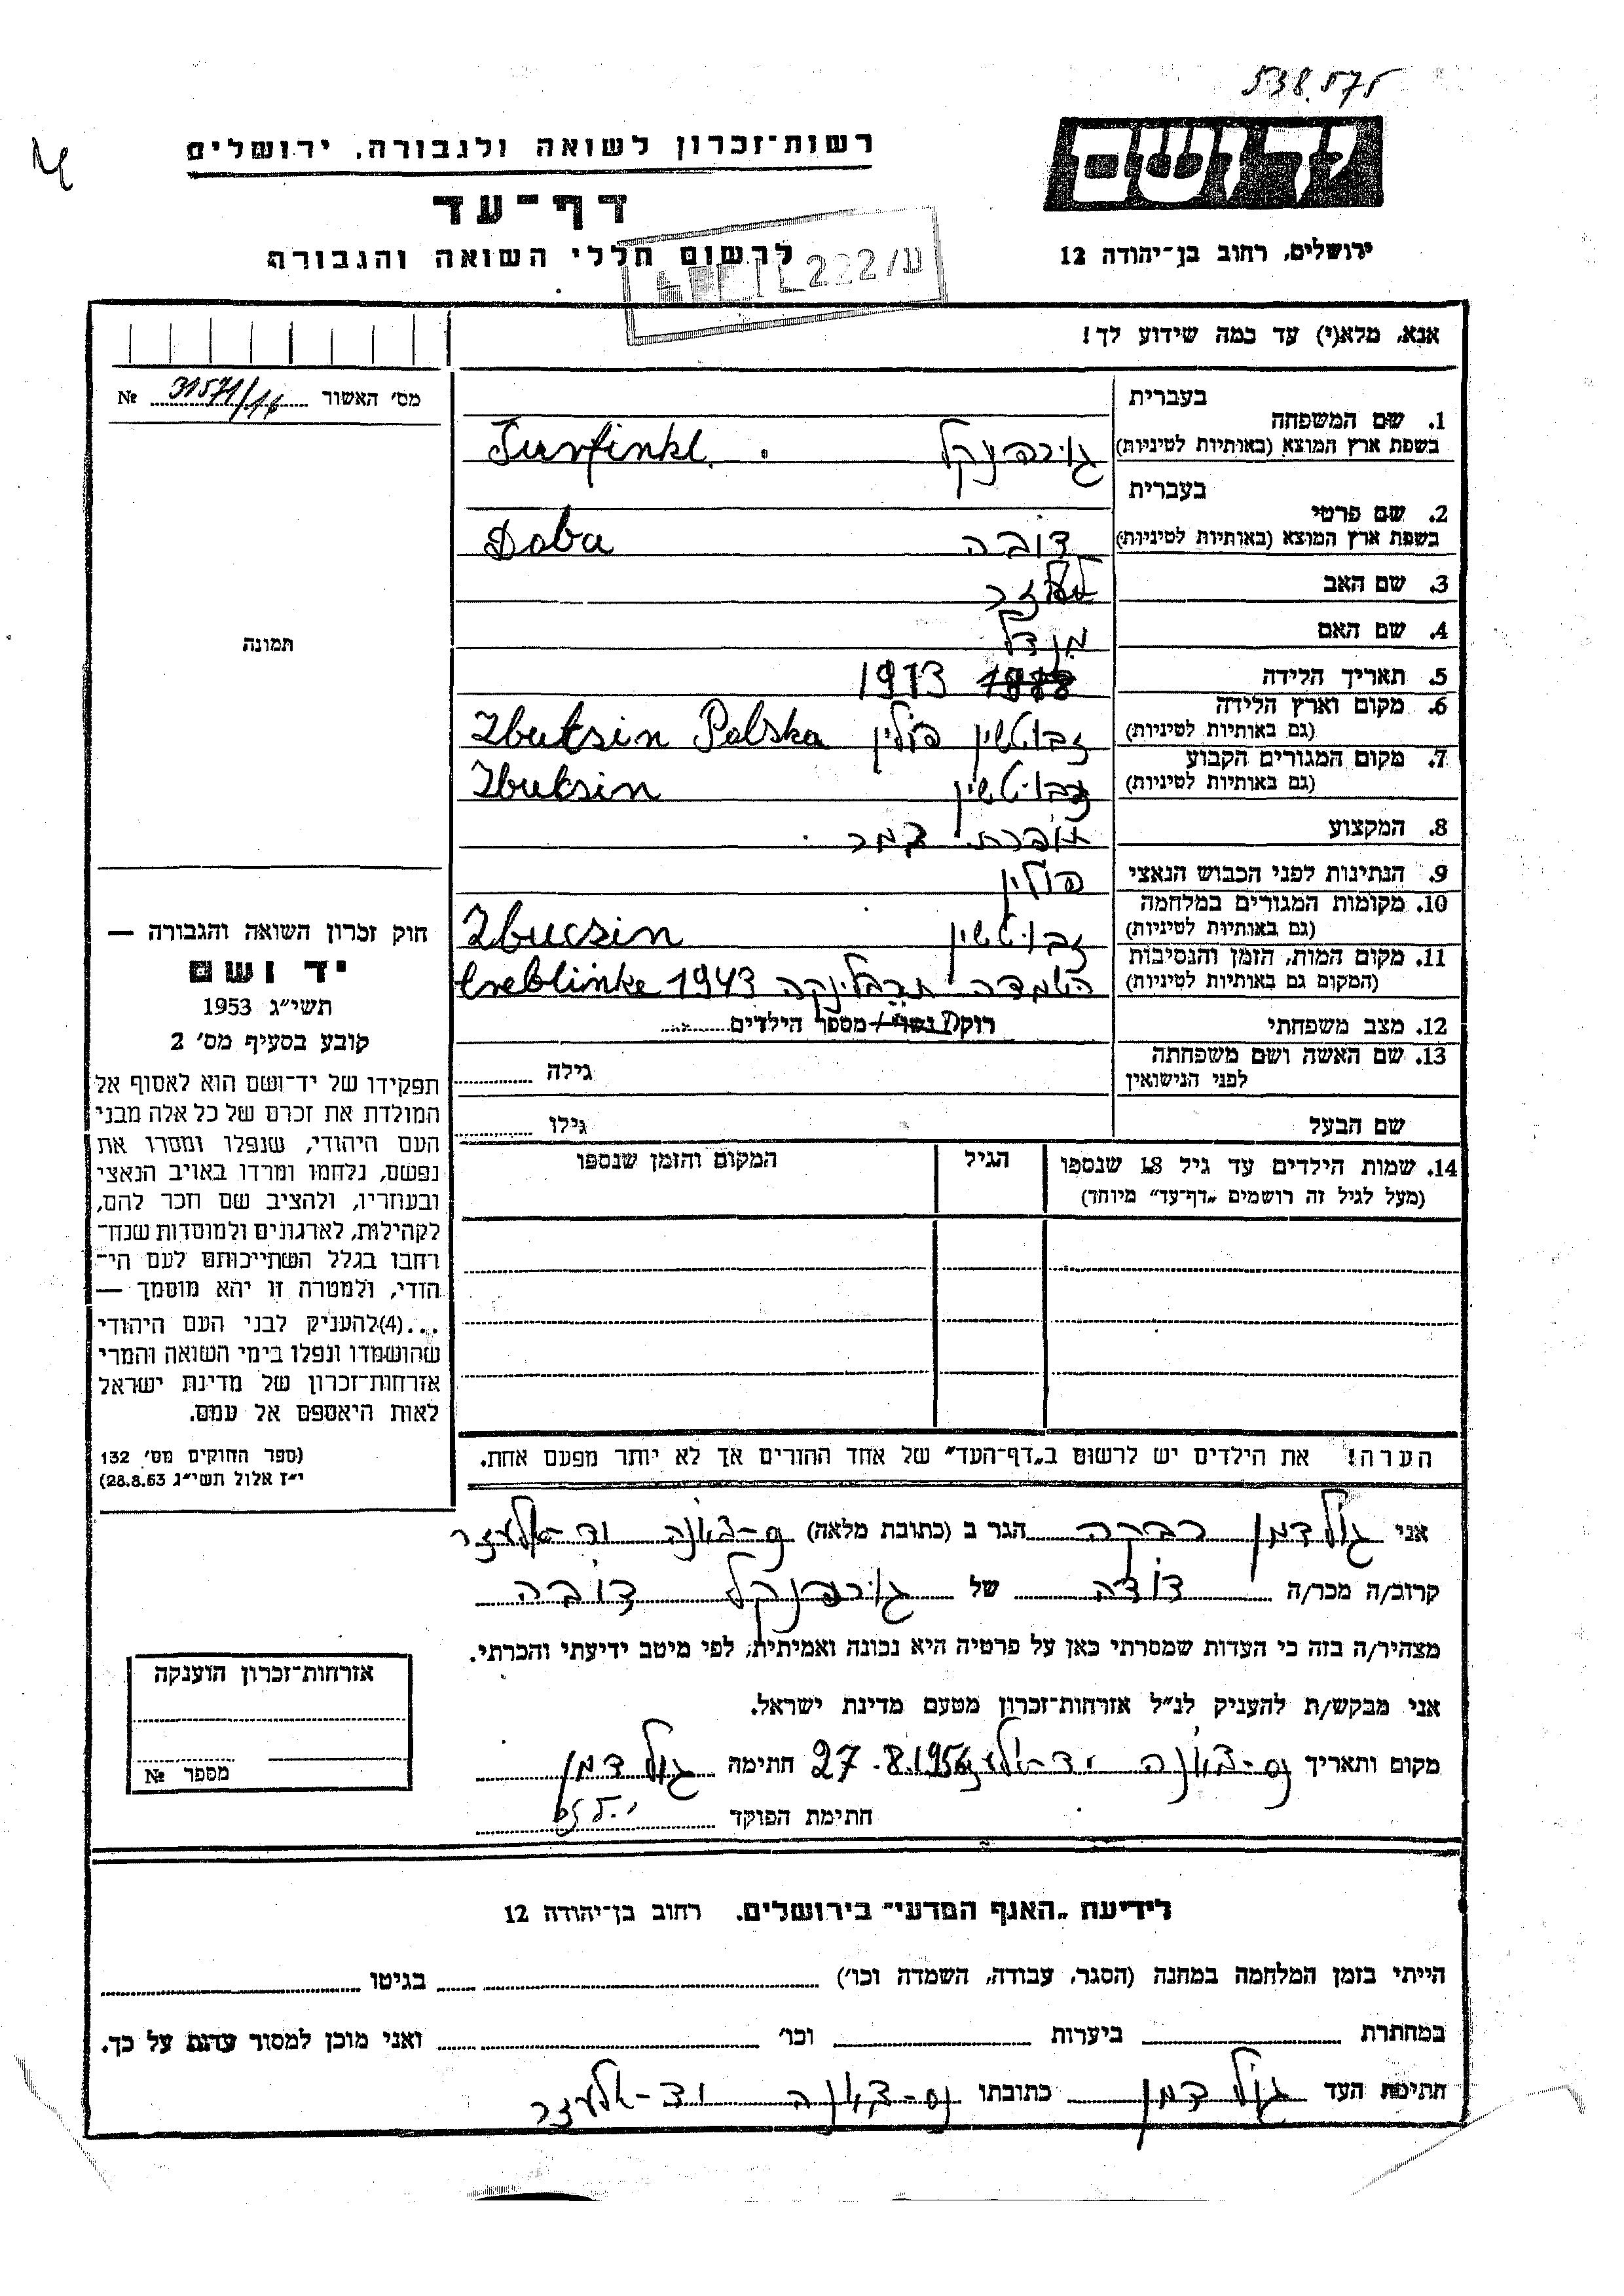 538.575
רשות־זכרון לשואה ולגבורה, ירושלים
יד ושם
דף־עד
לרשום חללי השואה והגבורה
ירושלים, רחוב בן־יהודה 12
222/ע
אנא, מלא(י) עד כמה שידוע לך!
מס׳ האשור 31571/16 №
1. שם המשפחה
בעברית
בשפת ארץ המוצא (באותיות לטיניות)
גורפינקל Turfinkl.
2. שם פרטי
בעברית
בשפת ארץ המוצא (באותיות לטיניות)
דובה Doba
3. שם האב
לעזר
4. שם האם
מנדל
5. תאריך הלידה
1913
6. מקום וארץ הלידה
(גם באותיות לטיניות)
זבוטשין פולין Zbutsin Polska
7. מקום המגורים הקבוע
(גם באותיות לטיניות)
זבוטשין Zbutsin
8. המקצוע
תופרת
9. הנתינות לפני הכבוש הנאצי
פולין
10. מקומות המגורים במלחמה
(גם באותיות לטיניות)
זבוטשין Zbucsin
11. מקום המות, הזמן והנסיבות
(המקום גם באותיות לטיניות)
השמדה טרבלינקה 1943 treblinke
12. מצב משפחתי
רוק/ה נשוי/ מספר הילדים
13. שם האשה ושם משפחתה
לפני הנישואין
גילה
שם הבעל
גילו
14. שמות הילדים עד גיל 18 שנספו
(מעל לגיל זה רושמים „דף־עד״ מיוחד)
הגיל
המקום והזמן שנספו
תמונה
חוק זכרון השואה והגבורה —
יד ושם
תשי״ג 1953
קובע בסעיף מס׳ 2
תפקידו של יד־ושם הוא לאסוף אל
המולדת את זכרם של כל אלה מבני
העם היהודי, שנפלו ומסרו את
נפשם, נלחמו ומרדו באויב הנאצי
ובעוזריו, ולהציב שם וזכר להם,
לקהילות, לארגונים ולמוסדות שנח־
רחבו בגלל השתייכותם לעם הי־
הודי, ולמטרה זו יהא מוסמך —
...(4)להעניק לבני העם היהודי
שהושמדו ונפלו בימי השואה והמרי
אזרחות־זכרון של מדינת ישראל
לאות היאספם אל עמם.
(ספר החוקים מס׳ 132
י״ז אלול תשי״ג 28.8.53)
הערה! את הילדים יש לרשום ב„דף־העד״ של אחד ההורים אך לא יותר מפעם אחת.
אני גולדמן רבקה הגר ב (כתובת מלאה) נס-ציונה יד-אליעזר
קרוב/ה מכר/ה דודה של גורפינקל דובה
מצהיר/ה בזה כי העדות שמסרתי כאן על פרטיה היא נכונה ואמיתית, לפי מיטב ידיעתי והכרתי.
אני מבקש/ת להעניק לנ״ל אזרחות־זכרון מטעם מדינת ישראל.
מקום ותאריך נס-ציונה יד-אליעזר 27.8.1956 חתימה גולדמן
חתימת הפוקד
אזרחות־זכרון הוענקה
מספר №
לידיעת „האגף המדעי״ בירושלים. רחוב בן־יהודה 12
הייתי בזמן המלחמה במחנה (הסגר, עבודה, השמדה וכו׳) בגיטו
במחתרת ביערות וכו׳ ואני מוכן למסור עדות על כך.
חתימת העד גולדמן כתובתו נס-ציונה יד-אליעזר